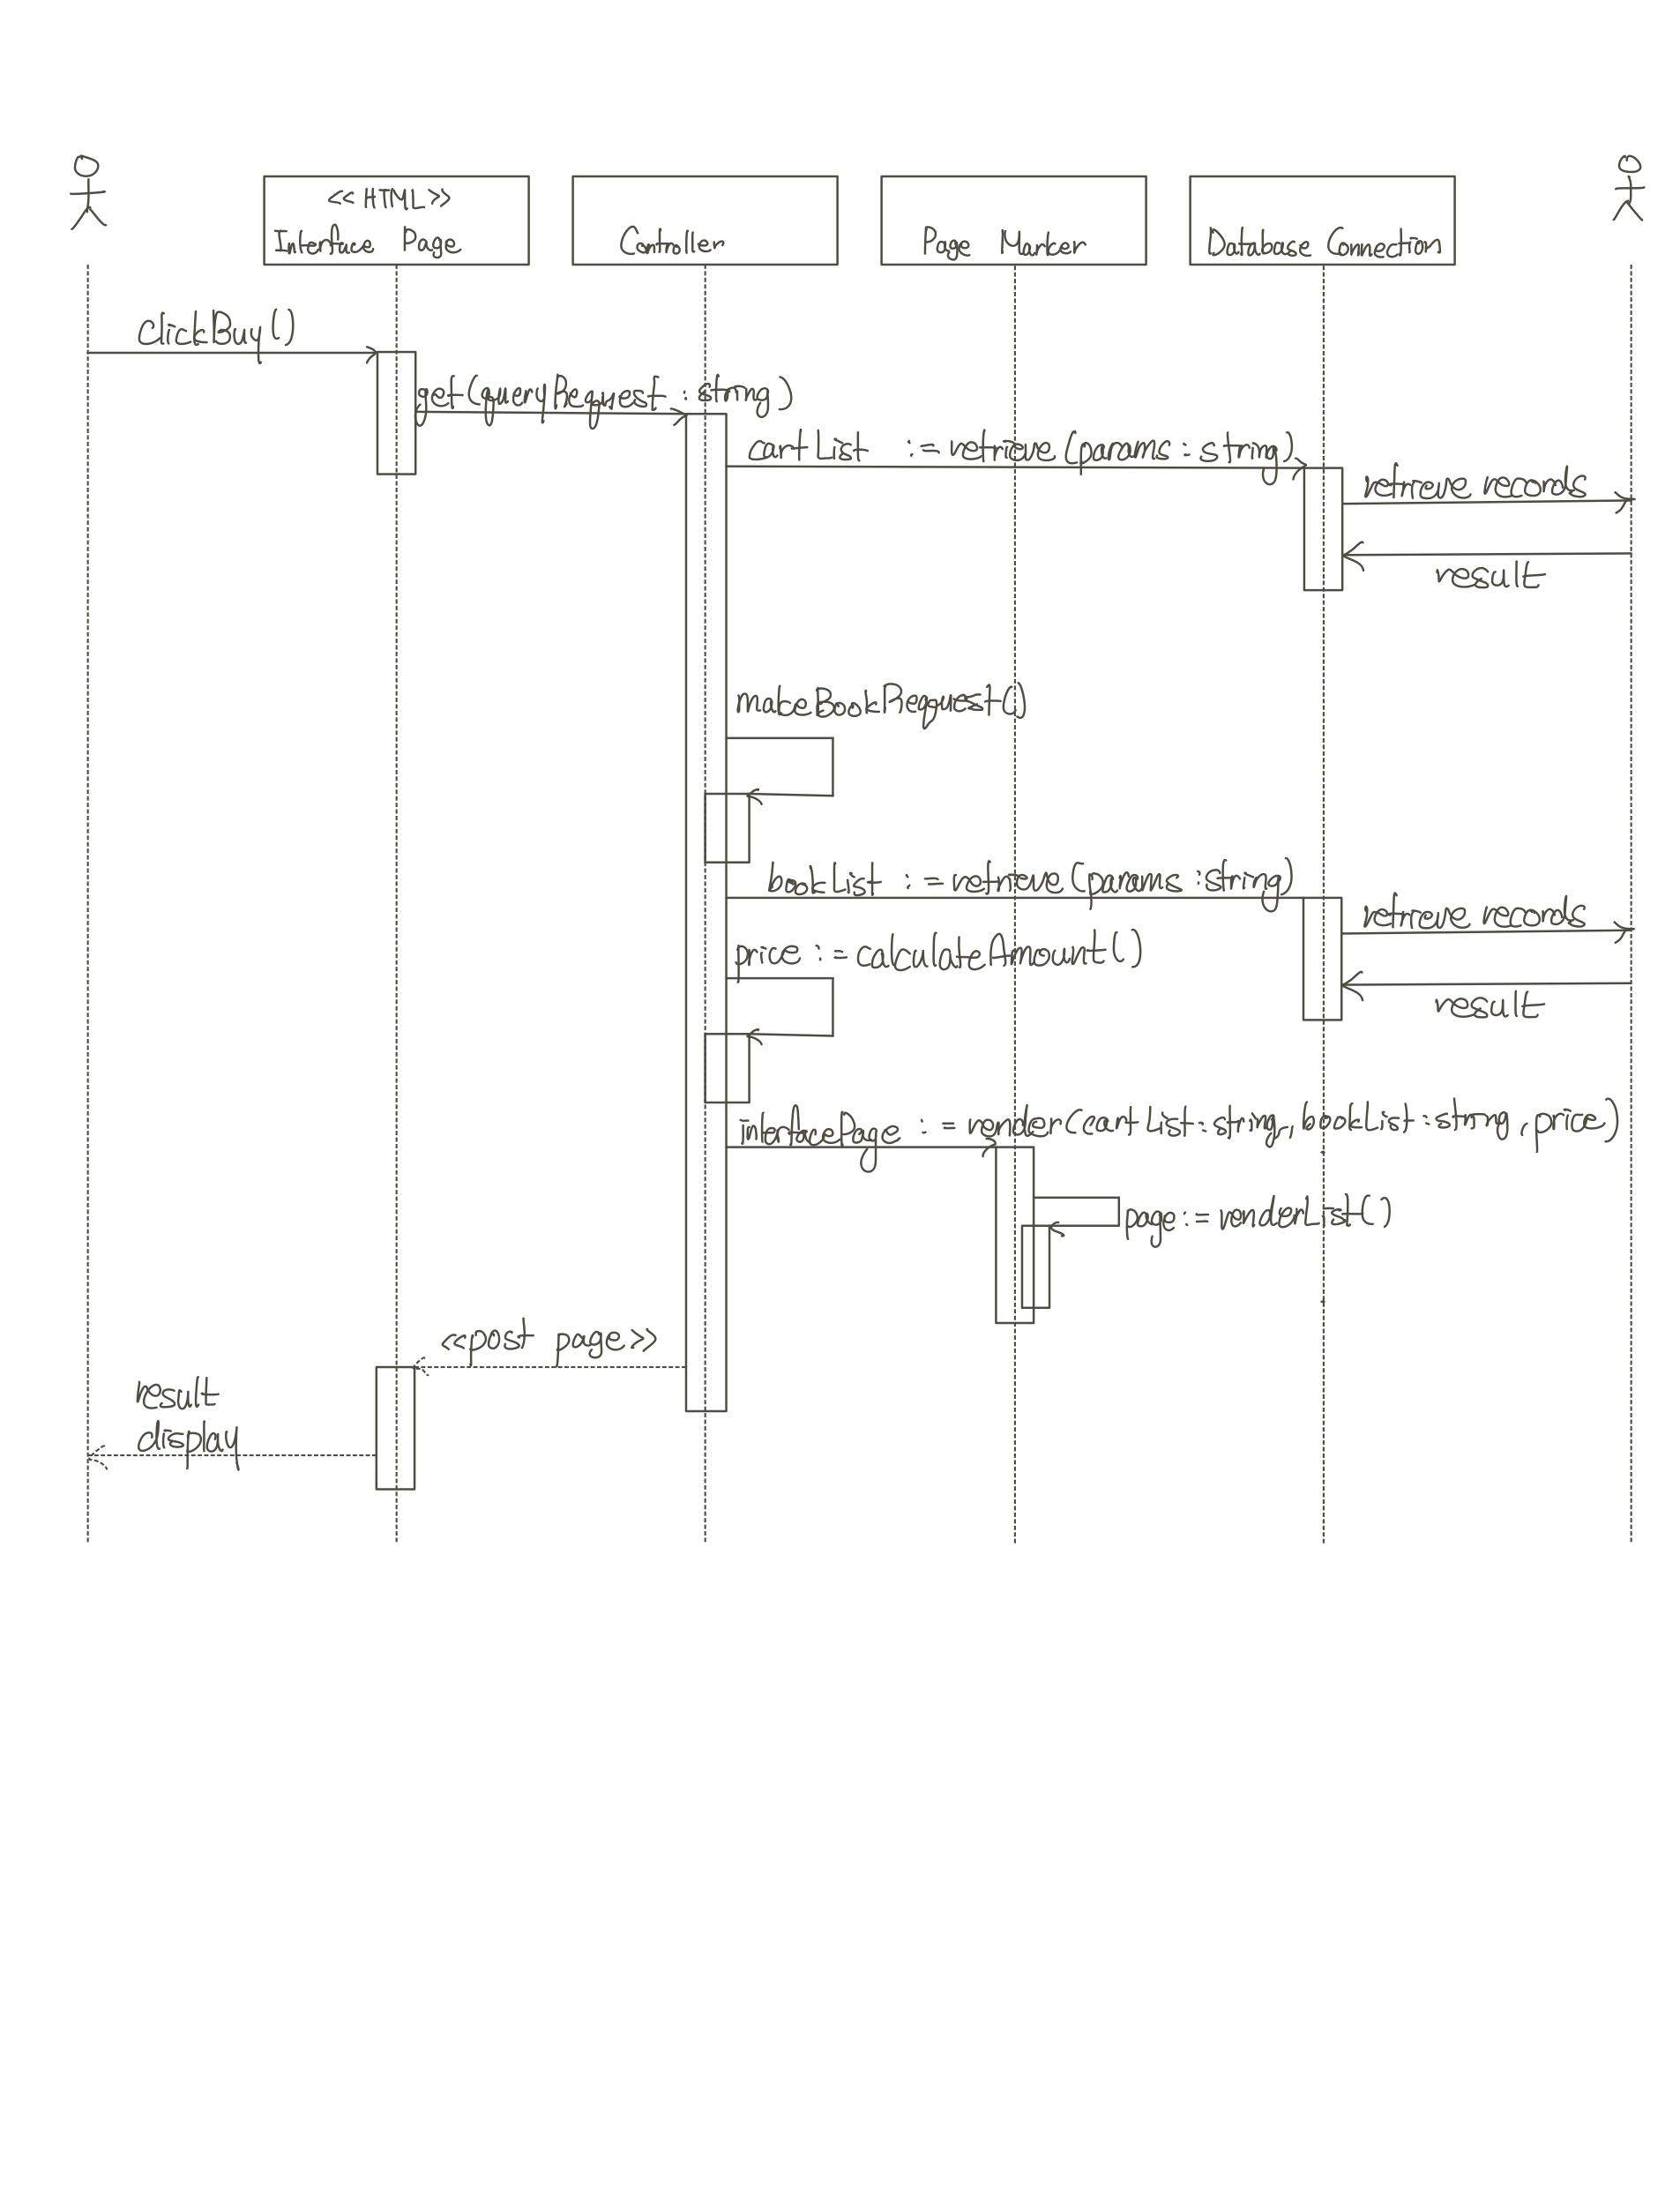 <<HTML>>
Interface Page
Controller
Page Marker
Database Connection
clickBuy()
get(queryRequest : string)
cartList := retrieve(params : string)
retrieve records
result
makeBookRequest()
bookList := retrieve(params : string)
retrieve records
price := calculateAmount()
result
interfacePage := render(cartList : string, bookList : string, price)
page := renderList()
<<post page>>
result
display